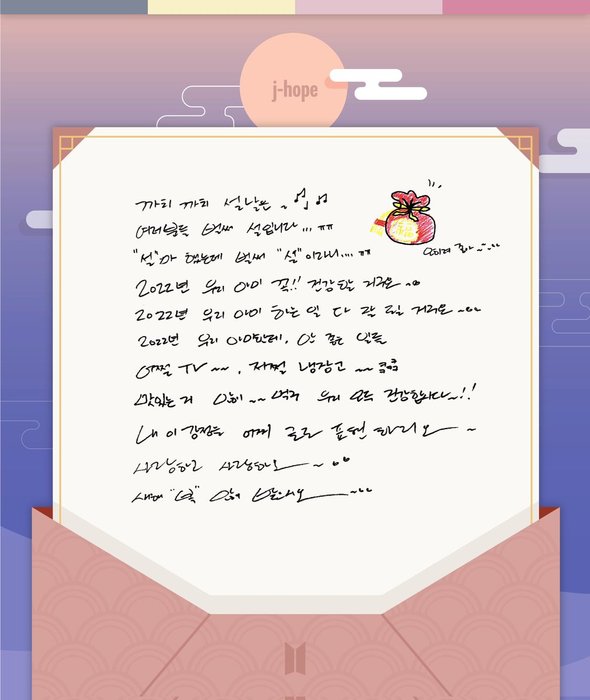 j-hope
까치 까치 설날은 ~
여러분들 벌써 설입니다... ㅠㅠ
"설"마 했는데 벌써 "설"이라니.... ㅠㅠ
2022년 우리 아미 꼭!! 건강할 거구요 ~
2022년 우리 아미 하는 일 다 잘 될 거구요 ~
2022년 우리 아미한테, 안 좋은 일들
어쩔 TV ~~, 저쩔 냉장고 ~~ 쿠쿠
맛있는 거 많이 ~~ 먹고 우리 모두 건강합시다 ~!!
내 이 감정을 어찌 글로 표현하리오 ~
사랑하고 사랑하오 ~
새해 "복" 많이 받으시오 ~